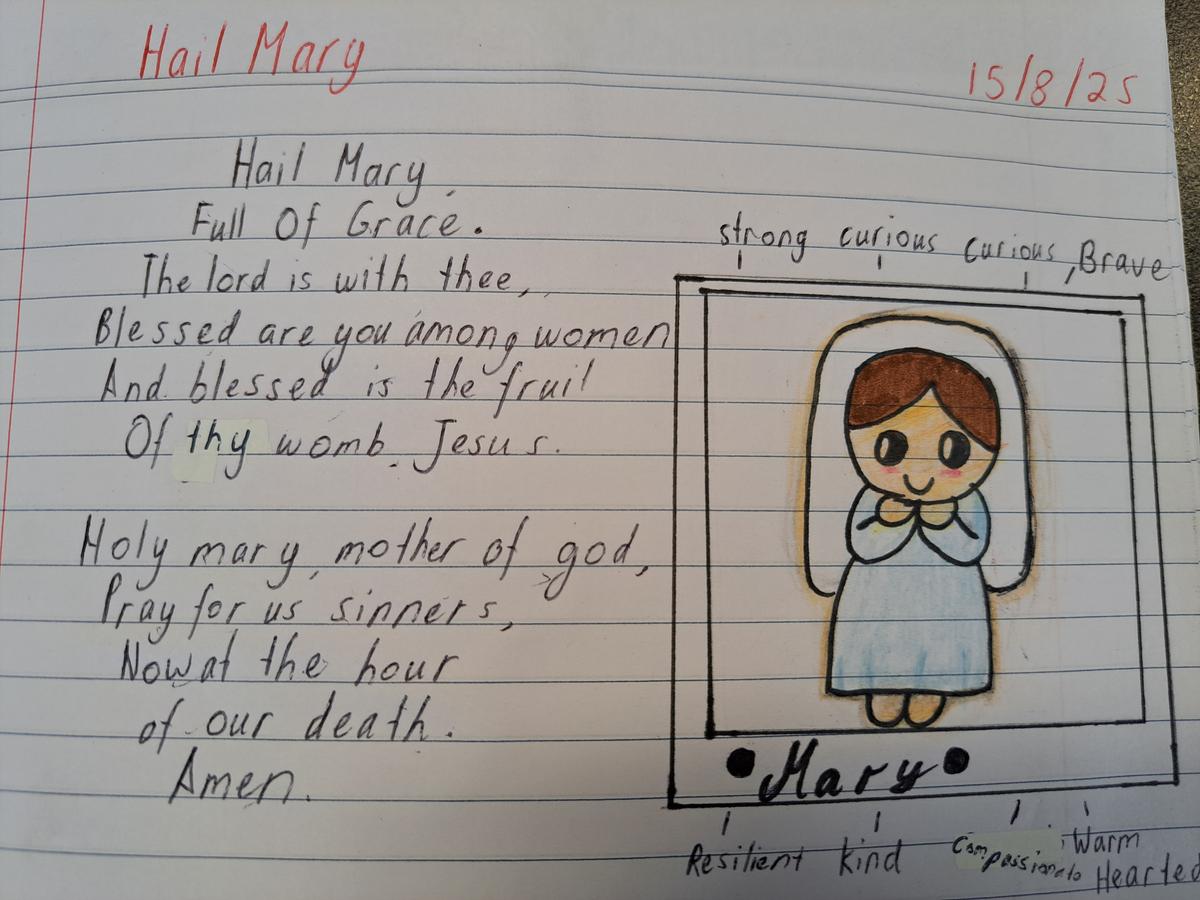 Hail Mary
15/8/25
Hail Mary,
Full Of Grace.
The lord is with thee,
Blessed are you among women
And blessed is the fruit
Of thy womb. Jesus.
Holy mary, mother of god,
Pray for us sinners,
Now at the hour
of our death.
Amen.
strong curious curious, Brave
Mary
Resilient kind Compassionate Warm Hearted